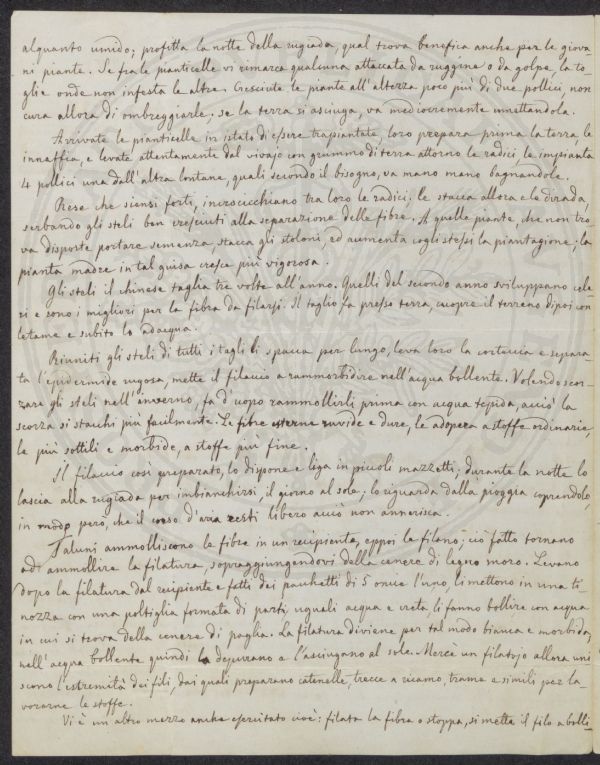 alquanto umido; profitta la notte della rugiada, qual trova benefica anche per le giova-
ni piante. Se fra le pianticelle vi rimarca qualcuna attaccata da ruggine o da golpe, la to-
glie onde non infesta le altre. Cresciute le piante all'altezza poco più di due pollici, non
cura allora di ombreggiarle; se la terra si asciuga, va mediocremente umettandola.
Arrivate le pianticelle in istato di essere trapiantate, loro prepara prima la terra, le
innaffia, e levate attentamente dal vivajo con grummo di terra attorno le radici le impianta
4 pollici una dall'altra lontane, quali secondo il bisogno, va mano mano bagnandole.
Rese che siensi forti, incrocicchiano tra loro le radici. le stacca allora e le dirada,
serbando gli steli ben cresciuti alla separazione delle fibre. A quelle piante, che non tro-
va disposte portare semenza stacca gli stoloni, ed aumenta cogli stessi la piantagione; la
pianta madre in tal guisa cresce più vigorosa.
Gli steli il chinese taglia tre volte all'anno. Quelli del secondo anno sviluppano cele-
ri e sono i migliori per la fibra da filarsi. Il taglio fa presso terra, cuopre il terreno dipoi con
letame e subito lo adacqua.
Riuniti gli steli di tutti i tagli li spacca per lungo, leva loro la corteccia e separa-
ta l'epidermide rugosa, mette il filaccio a rammorbidire nell'acqua bollente. Volendo scor-
zare gli steli nell'inverno, fa d'uopo rammollirli prima con acqua tepida, acciò la
scorza si stacchi più facilmente. Le fibre esterne ruvide e dure, le adopera a stoffe ordinarie,
le più sottili e morbide, a stoffe più fine.
Il filaccio così preparato, lo dispone e liga in piccoli mazzetti; durante la notte lo
lascia alla rugiada per imbianchirsi, il giorno al sole; lo riguarda dalla pioggia coprendolo,
in modo però, che il corso d'aria resti libero acciò non annerisca.
Taluni ammolliscono le fibre in un recipiente, eppoi la filano; ciò fatto tornano
ad ammollire la filatura, sopraggiungendovi della cenere di legno moro. Levano
dopo la filatura dal recipiente e fatti dei pacchetti di 5 once l'uno, li mettono in una ti-
nozza con una poltiglia formata di parti uguali acqua e creta, li fanno bollire con acqua
in cui si trova della cenere di paglia. La filatura diviene per tal modo bianca e morbida;
nell'acqua bollente quindi la depurano e l'asciugano al sole. Mercè un filatojo allora uni-
scono l'estremità dei fili, dai quali preparano catenelle, trecce a ricamo, trame e simili per la-
vorarne le stoffe.
Vi è un altro mezzo anche esercitato cioè: filata la fibra o stoppa, si mette il filo a bolli-